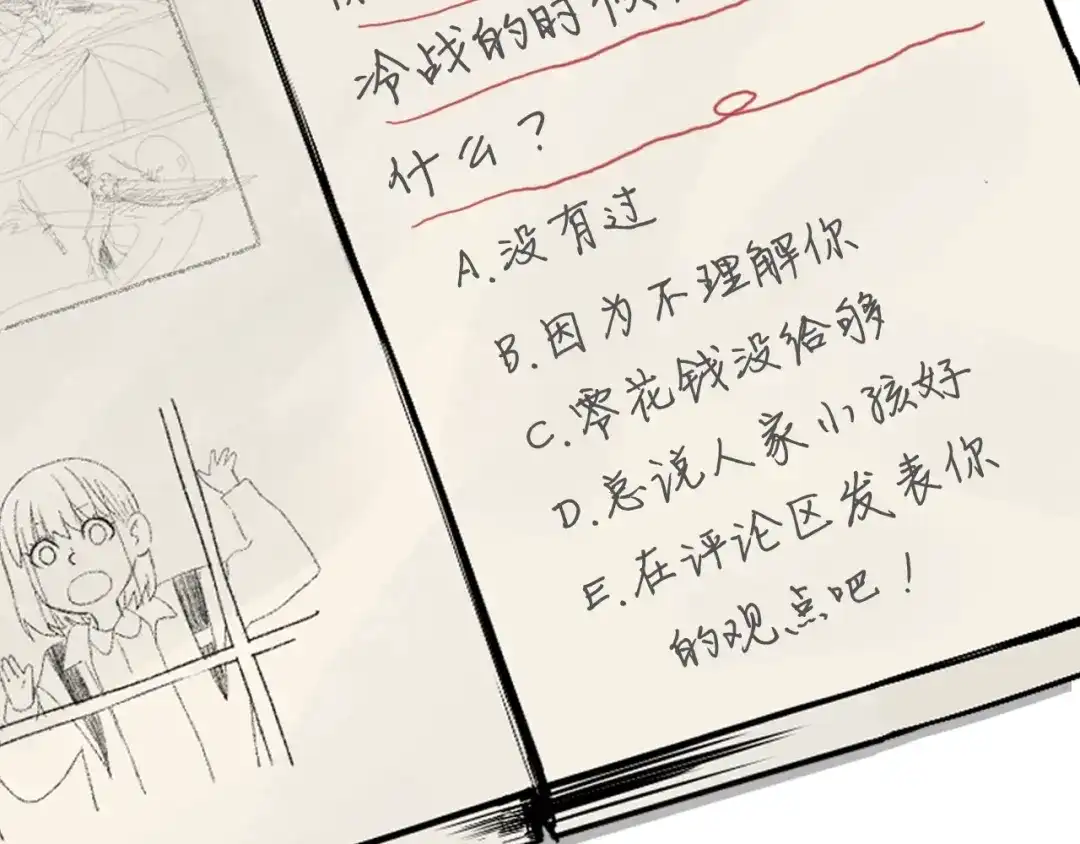 冷战的时候
什么？
A.没有过
B.因为不理解你
C.零花钱没给够
D.总说人家小孩好
E.在评论区发表你
的观点吧！